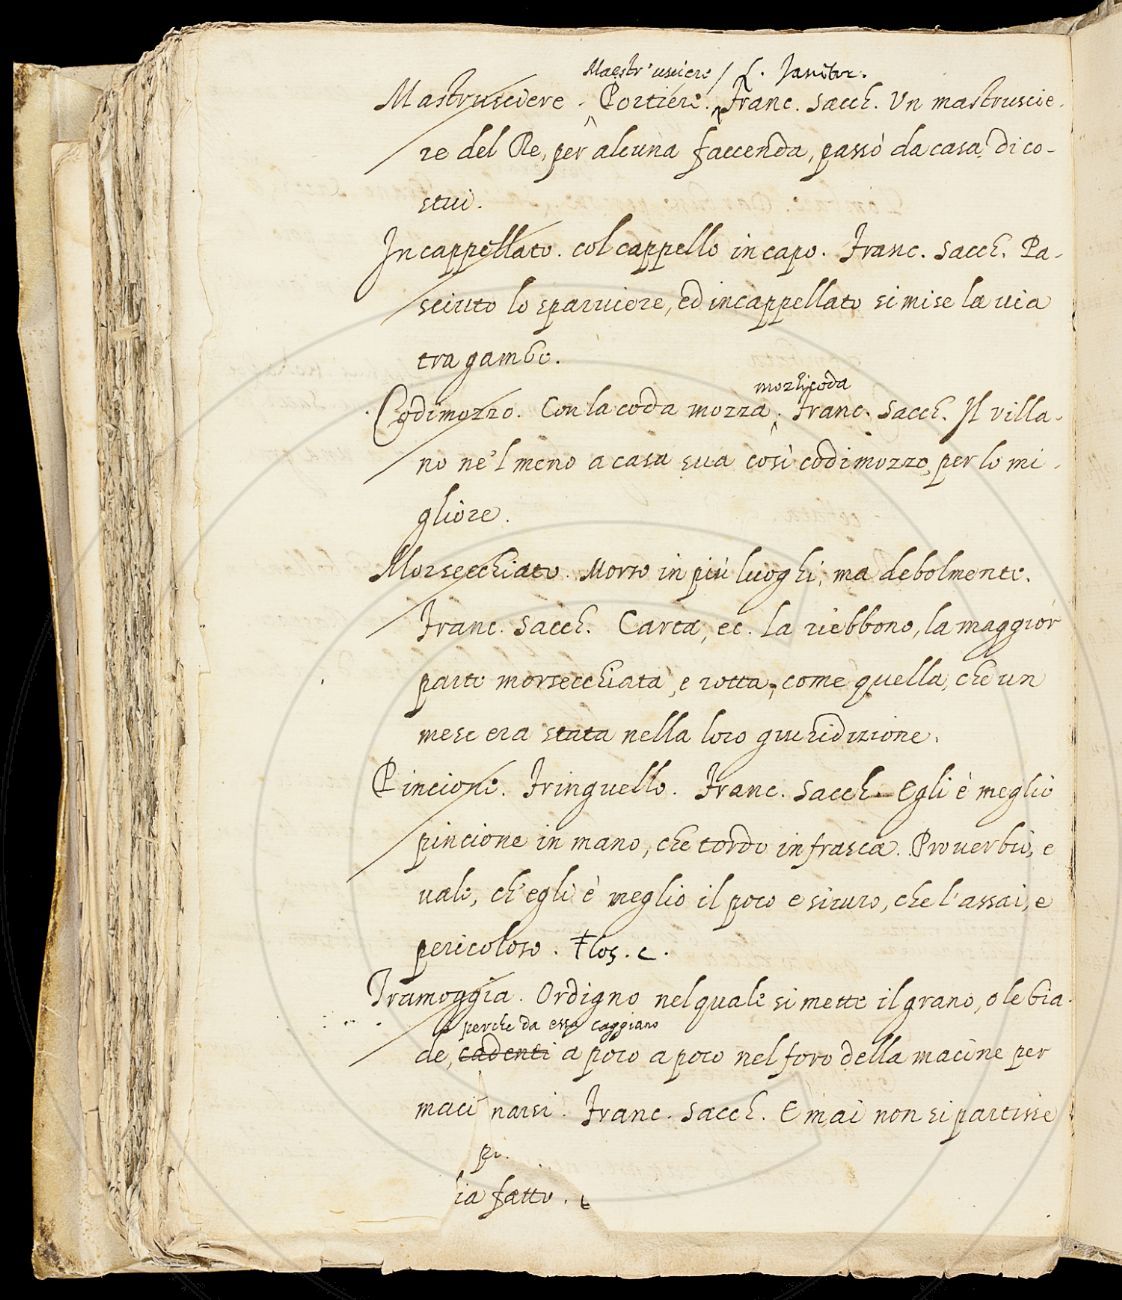 Maestr'usciere / L. Janitor.
Mastrusciere. Portiere. Franc. Sacch. Un mastruscie-
re del Re, per alcuna faccenda, passò da casa di co-
stui.
Incappellato. col cappello in capo. Franc. Sacch. Pa-
sciuto lo sparviere, ed incappellato si mise la via
tra gambe.
mozzicoda
Codimozzo. Con la coda mozza. Franc. Sacch. Il villa-
no ne 'l menò a casa sua così codimozzo, per lo mi-
gliore.
Morsecchiato. Morso in più luoghi, ma debolmente.
Franc. Sacch. Carta, ec. la riebbono, la maggior
parte morsecchiata, e rotta, come quella, che un
mese era stata nella loro giuridizione.
Pincione. Fringuello. Franc. Sacch. Egli è meglio
pincione in mano, che tordo in frasca. Proverbio, e
vale, ch'egli è meglio il poco e sicuro, che l'assai, e
pericoloso. Flos. c.
Tramoggia. Ordigno nel quale si mette il grano, o le bia-
perche da essa caggiano
de, cadenti a poco a poco nel foro della macine per
macinarsi. Franc. Sacch. E mai non si partisse
fatto.